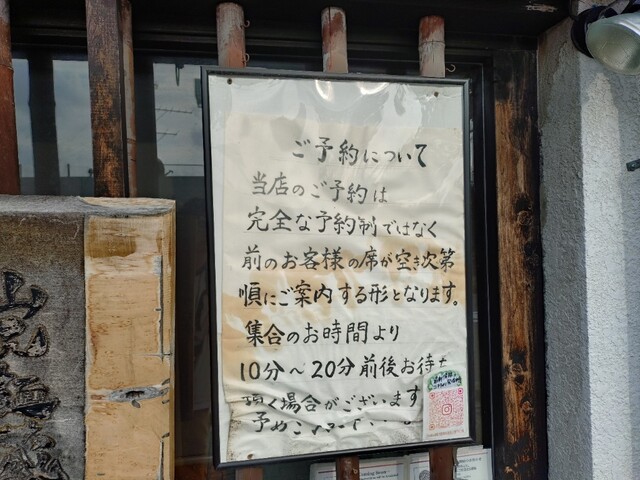 ご予約について
当店のご予約は
完全な予約制ではなく
前のお客様の席が空き次第
順にご案内する形となります。
集合のお時間より
10分～20分前後お待ち
頂く場合がございます
予めご